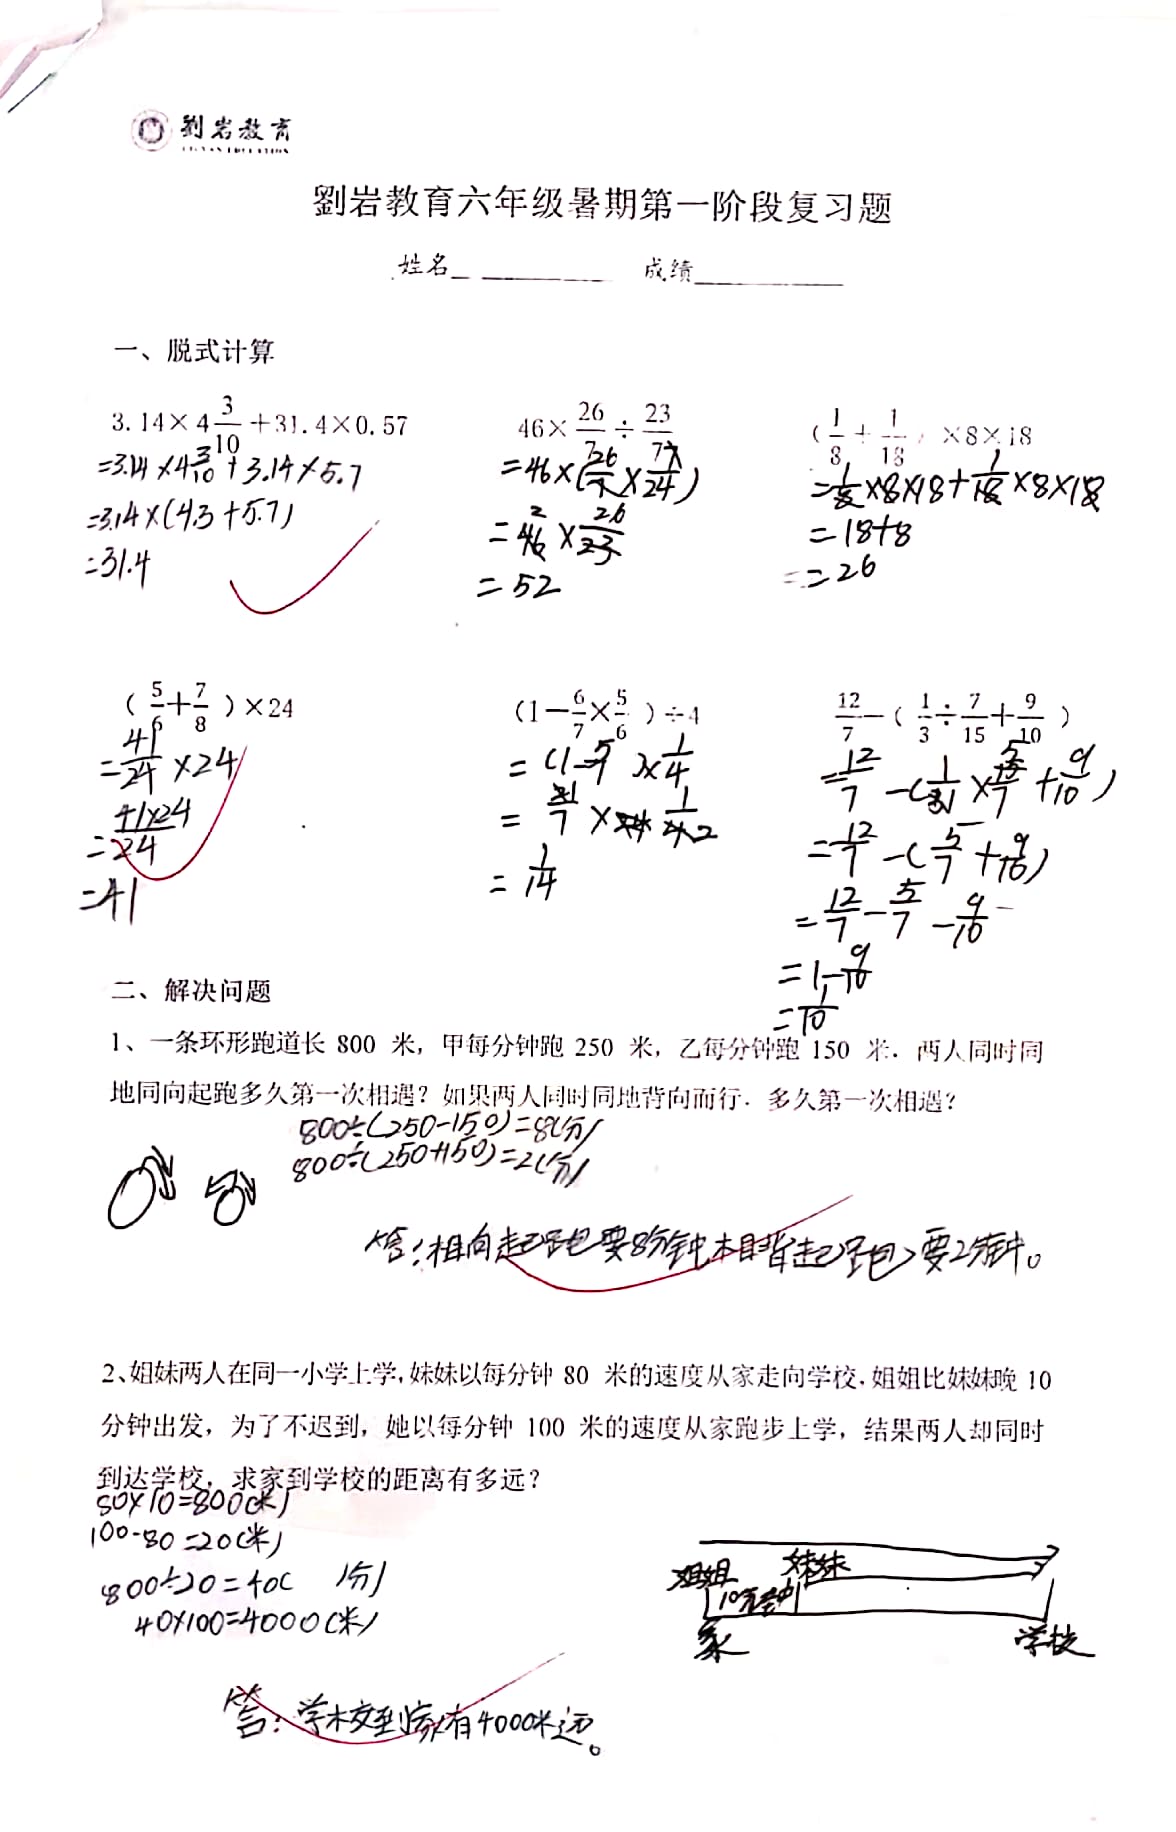 劉岩教育
劉岩教育六年级暑期第一阶段复习题
姓名 成绩
一、脱式计算
3.14×4 3/10 +31.4×0.57
=3.14×4 3/10 +3.14×5.7
=3.14×(4.3+5.7)
=31.4
46× 26/7 ÷ 23/7
=46×(26/7 ×7/24)
=46×26/23
=52
(1/8 + 1/18) ×8×18
=1/8×8×18+1/18×8×18
=18+8
=26
(5/6+7/8)×24
=41/24 ×24
=41×24/24
=41
(1−6/7×5/6)÷4
=(1−5/7)×1/4
=2/7×1/4 2
=1/14
12/7−(1/3÷7/15+9/10)
=12/7−(1/3×15/7+9/10)
=12/7−(5/7+9/10)
=12/7−5/7−9/10
=1−9/10
=1/10
二、解决问题
1、一条环形跑道长 800 米，甲每分钟跑 250 米，乙每分钟跑 150 米．两人同时同
地同向起跑多久第一次相遇？如果两人同时同地背向而行．多久第一次相遇？
800÷(250-150)=8(分)
800÷(250+150)=2(分)
答：相向起跑要8分钟相背起跑要2分钟。
2、姐妹两人在同一小学上学，妹妹以每分钟 80 米的速度从家走向学校，姐姐比妹妹晚 10
分钟出发，为了不迟到，她以每分钟 100 米的速度从家跑步上学，结果两人却同时
到达学校，求家到学校的距离有多远？
80×10=800(米)
100-80=20(米)
800÷20=40 (分)
40×100=4000(米)
姐姐 妹妹
10分钟
家 学校
答：学校到家有4000米远。